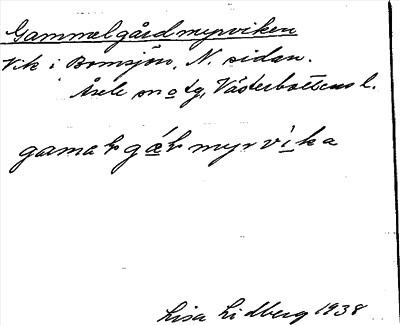 Gammelgårdmyrviken
Vik i Bomsjön, N. sidan.
Åsele sn o tg, Västerbottens l.
gamaƚgæƚmyrvika
Lisa Lidberg 1938